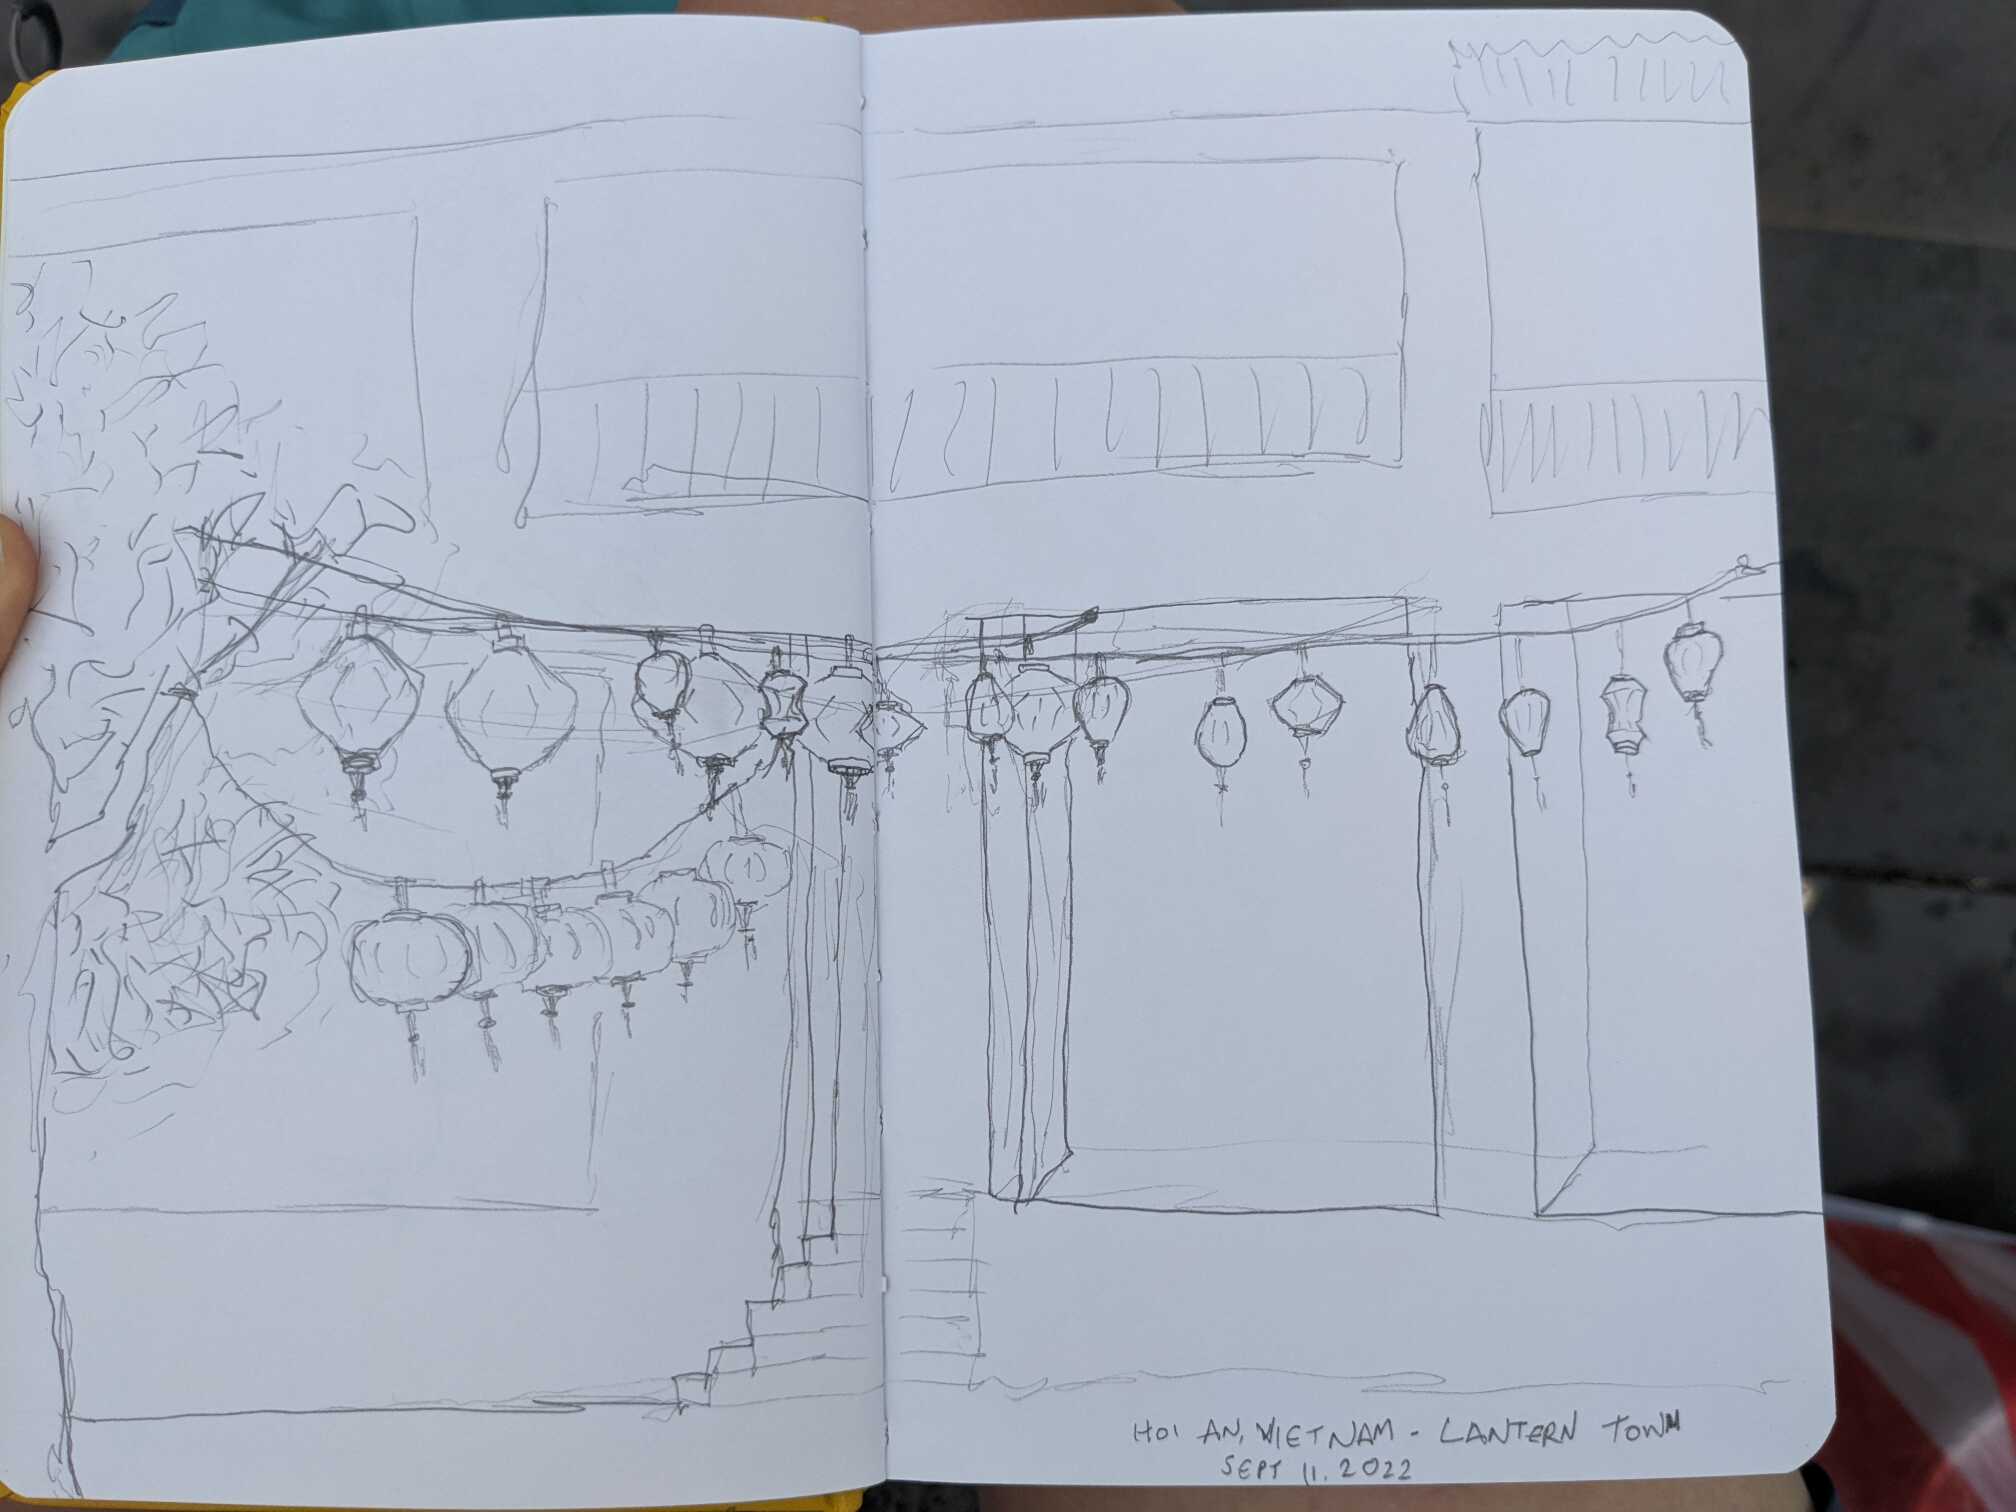 HOI AN, VIETNAM - LANTERN TOWN
SEPT 11. 2022